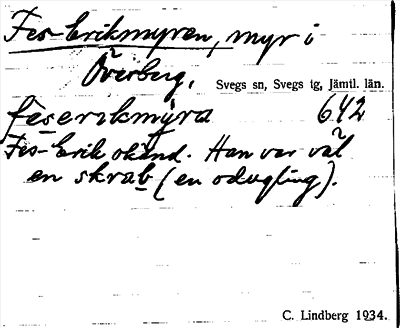 Fes-Erikmyren, myr i
Överberg, Svegs sn, Svegs tg, Jämtl. län.
feserikmỳra 642
Fes-Erik okänd. Han var väl
en skrab (en odugling).
C. Lindberg 1934.